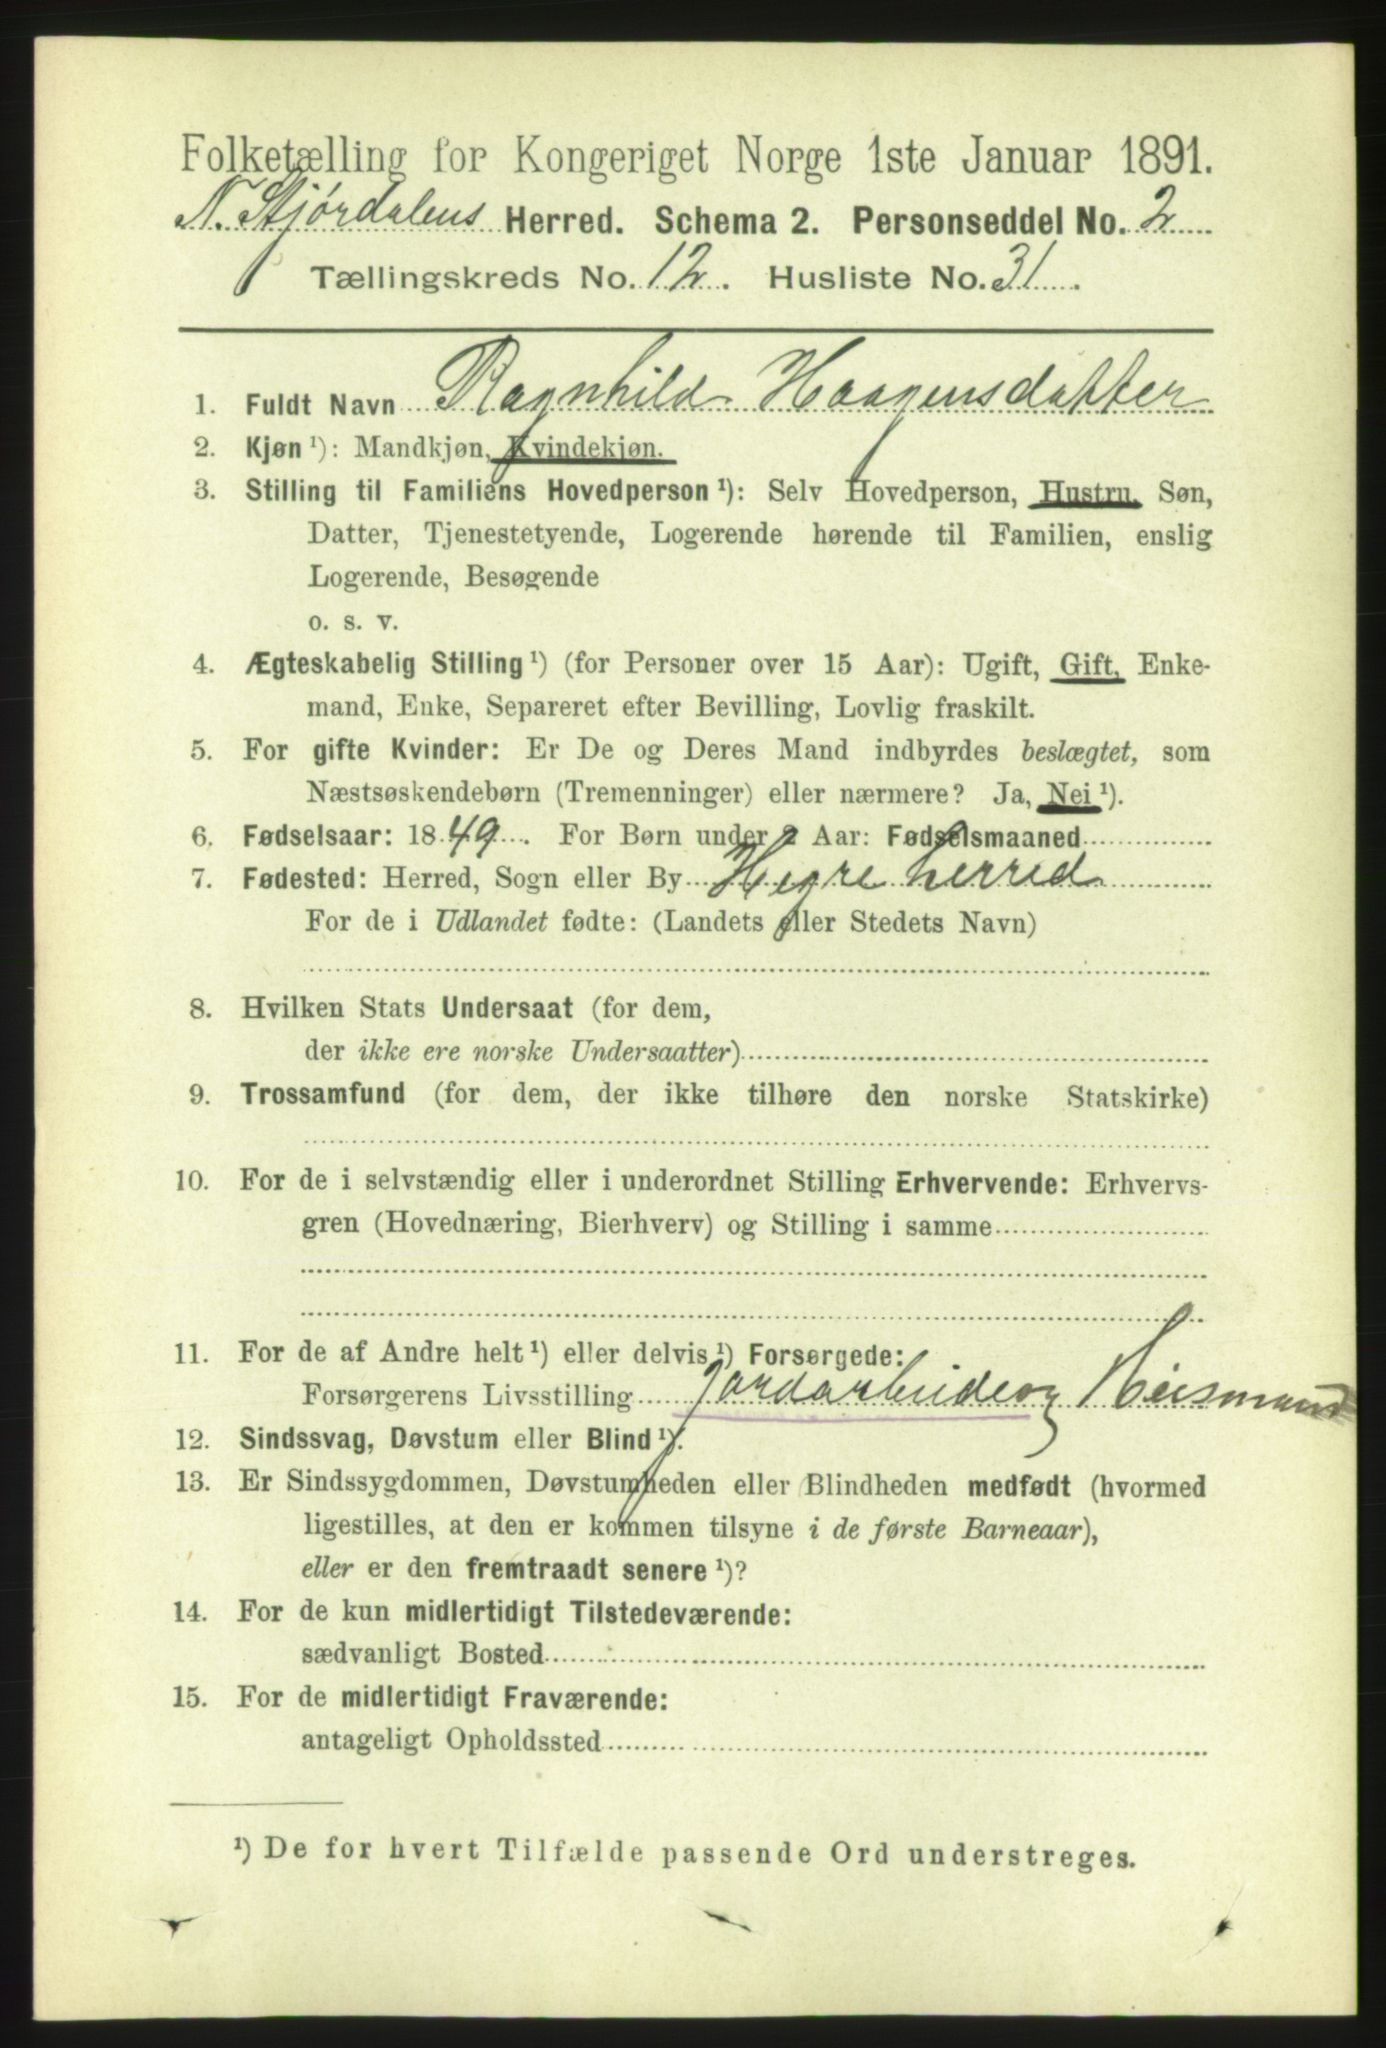 Folketælling for Kongeriget Norge 1ste Januar 1891.
N. Stjørdalens Herred. Schema 2. Personseddel No. 2
Tællingskreds No. 12. Husliste No. 31.
1. Fuldt Navn Ragnhild Haagensdatter
2. Kjøn ¹): Mandkjøn, Kvindekjøn.
3. Stilling til Familiens Hovedperson ¹): Selv Hovedperson, Hustru, Søn,
Datter, Tjenestetyende, Logerende hørende til Familien, enslig
Logerende, Besøgende
o. s. v.
4. Ægteskabelig Stilling ¹) (for Personer over 15 Aar): Ugift, Gift, Enke-
mand, Enke, Separeret efter Bevilling, Lovlig fraskilt.
5. For gifte Kvinder: Er De og Deres Mand indbyrdes beslægtet, som
Næstsøskendebørn (Tremenninger) eller nærmere? Ja, Nei ¹).
6. Fødselsaar: 1849. For Børn under 2 Aar: Fødselsmaaned
7. Fødested: Herred, Sogn eller By Hegre herred
For de i Udlandet fødte: (Landets eller Stedets Navn)
8. Hvilken Stats Undersaat (for dem,
der ikke ere norske Undersaatter)
9. Trossamfund (for dem, der ikke tilhøre den norske Statskirke)
10. For de i selvstændig eller i underordnet Stilling Erhvervende: Erhvervs-
gren (Hovednæring, Bierhverv) og Stilling i samme
11. For de af Andre helt ¹) eller delvis ¹) Forsørgede:
Forsørgerens Livsstilling Jordarbeide og
12. Sindssvag, Døvstum eller Blind ¹).
13. Er Sindssygdommen, Døvstumheden eller Blindheden medfødt (hvormed
ligestilles, at den er kommen tilsyne i de første Barneaar),
eller er den fremtraadt senere ¹)?
14. For de kun midlertidigt Tilstedeværende:
sædvanligt Bosted
15. For de midlertidigt Fraværende:
antageligt Opholdssted
¹) De for hvert Tilfælde passende Ord understreges.